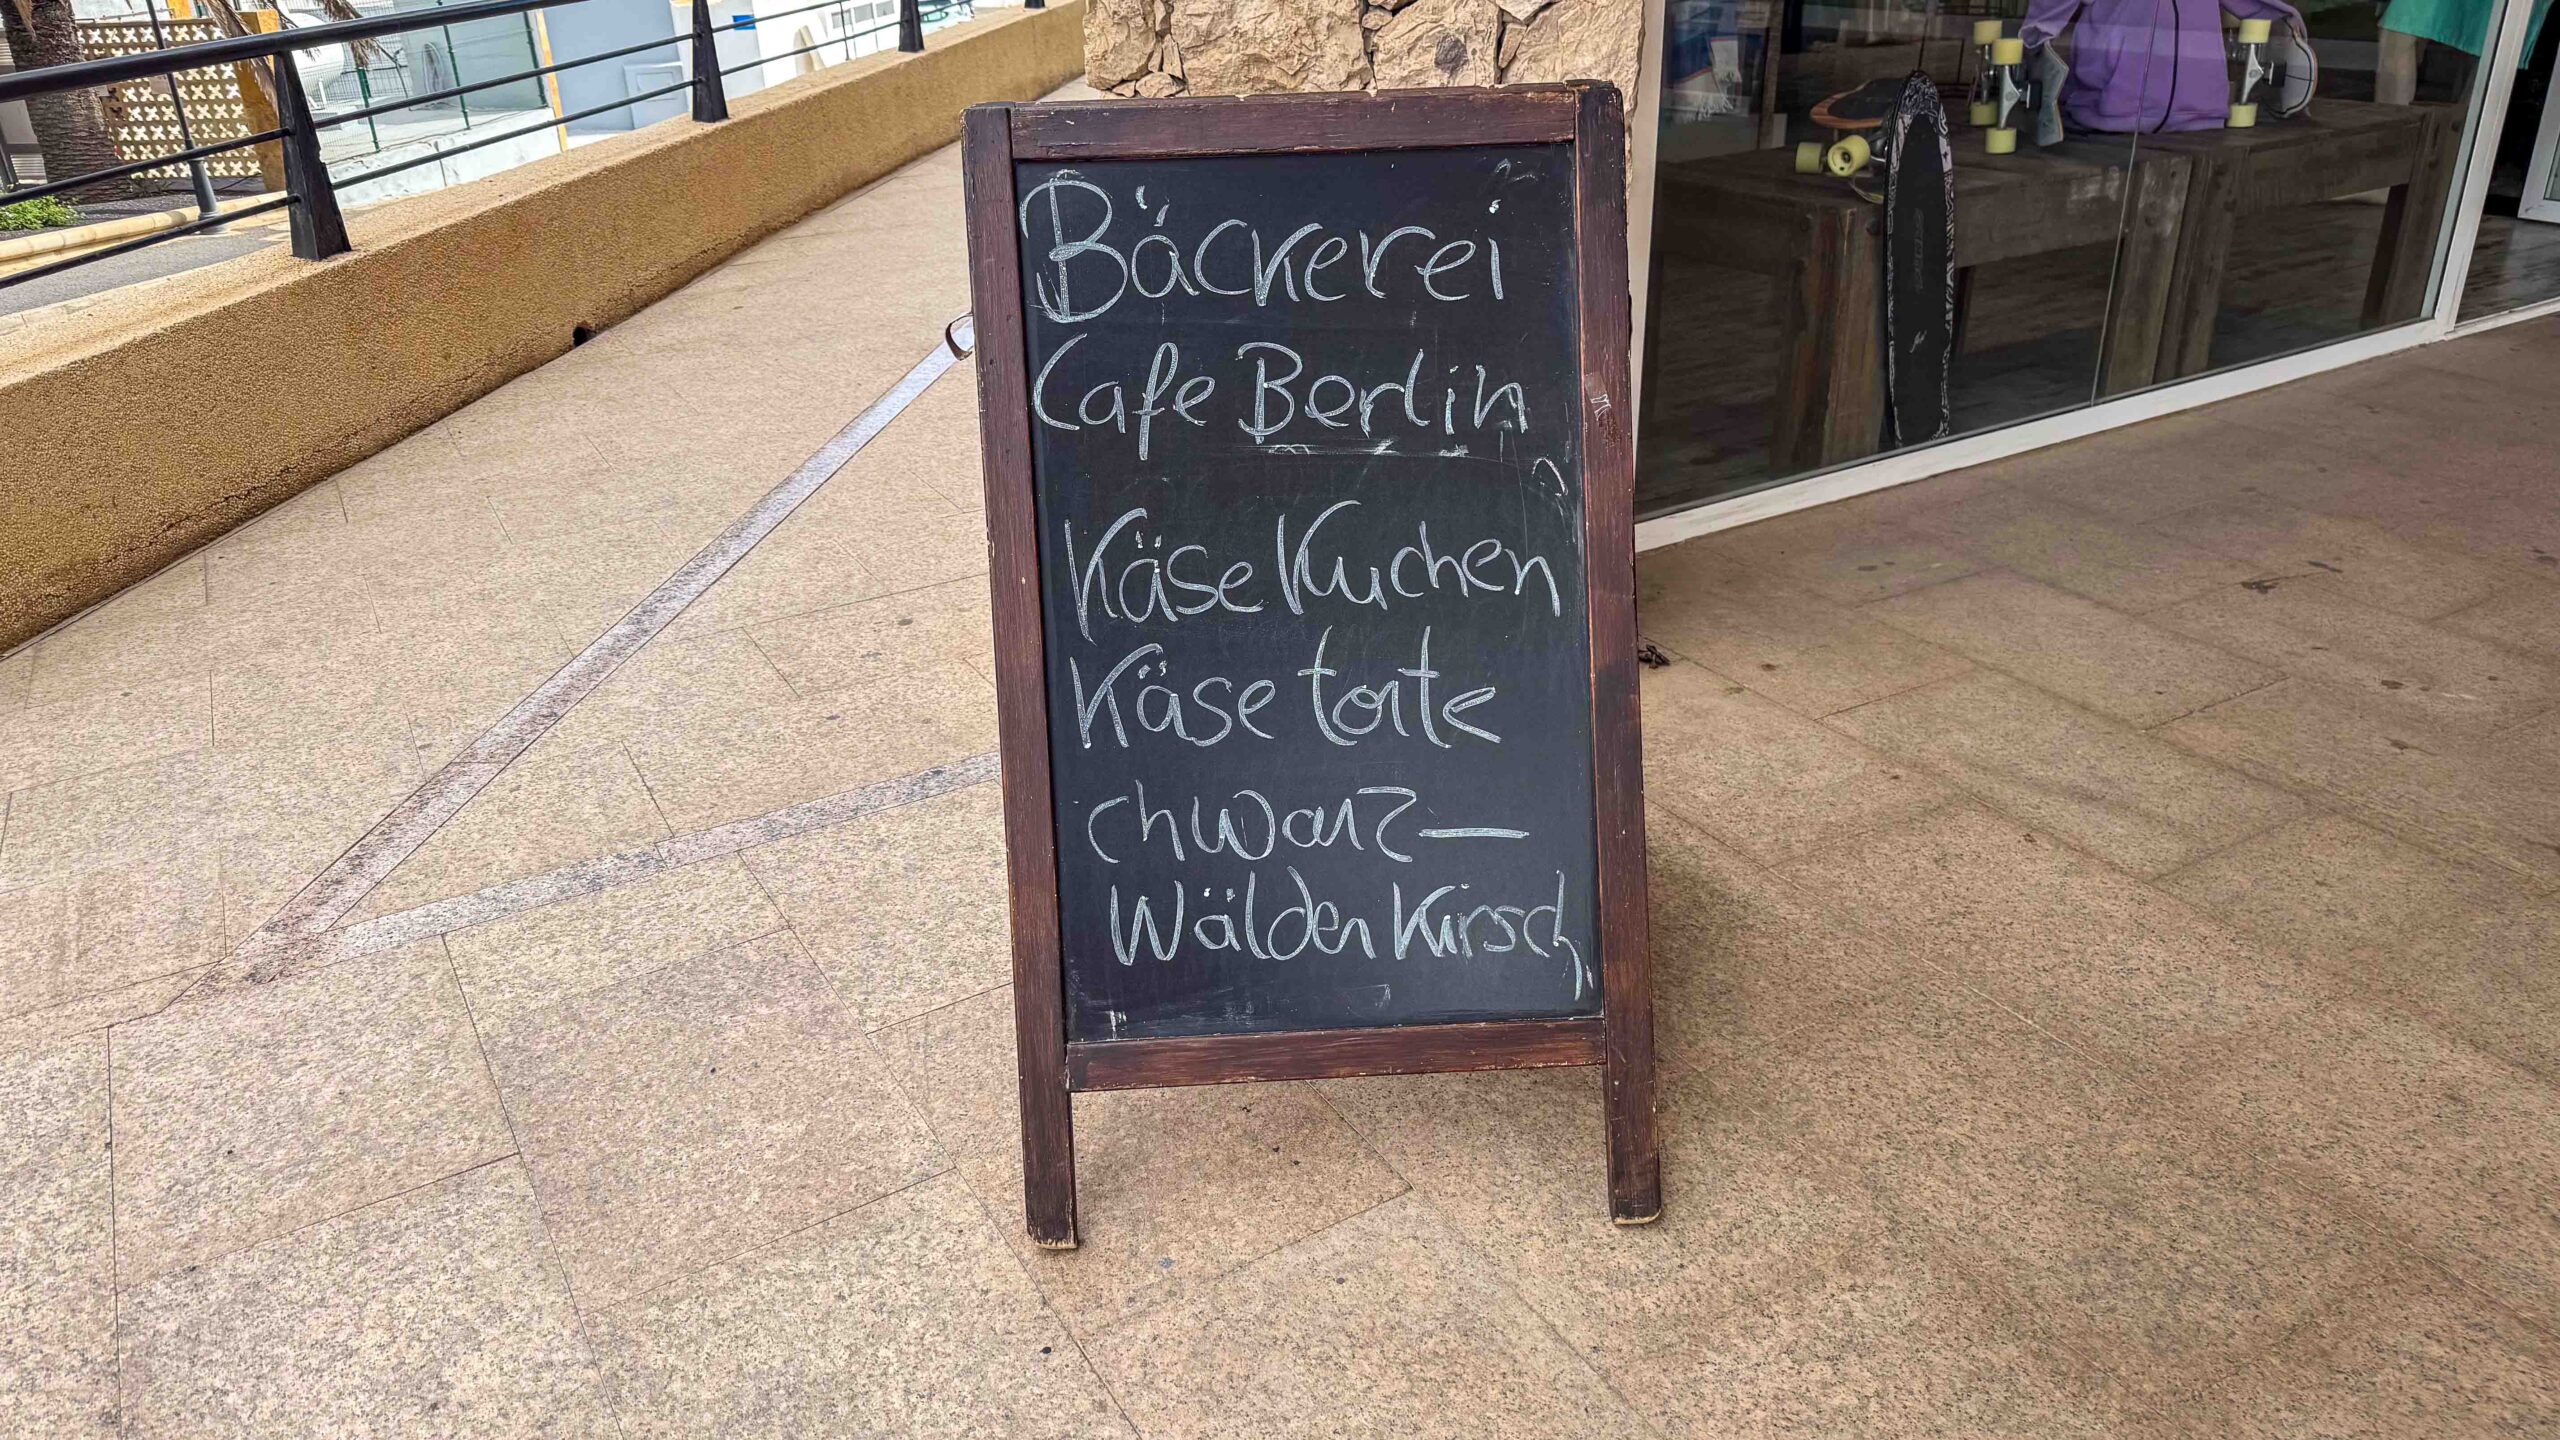 Bäckerei
Cafe Berlin
Käse Kuchen
Käse torte
chwarz-
Wälder Kirsch